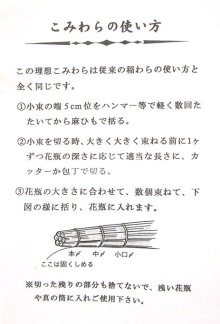 こみわらの使い方
この理想こみわらは従来の稲わらの使い方と
全く同じです。
①小束の端5cm位をハンマー等で軽く数回た
たいてから麻ひもで括る。
②小束を切る時、大きく大きく束ねる前に1〆
ずつ花瓶の深さに応じて適当な長さに、カ
ッターか包丁で切る。
③花瓶の大きさに合わせて、数個束ねて、下
図の様に括り、花瓶に入れます。
本〆 中〆 小口〆
ここは固くしめる
※切った残りの部分も捨てないで、浅い花瓶
や真の筒に入れご使用下さい。